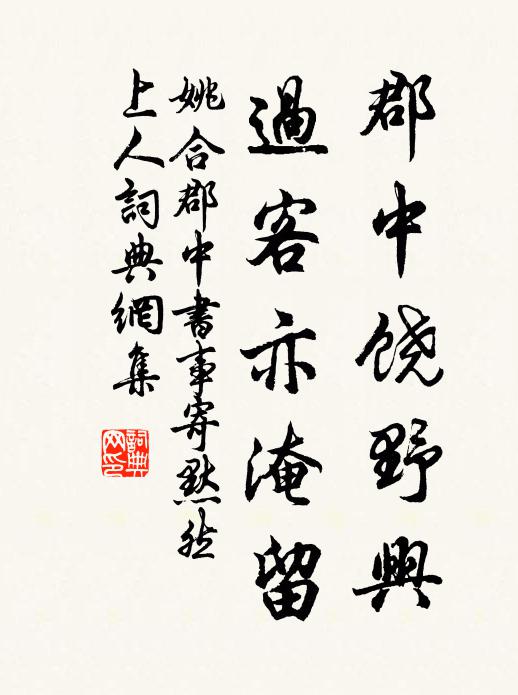 郡中饶野興
過客亦淹留
姚合郡中書事寄默然
上人詞典網集
詞典网印